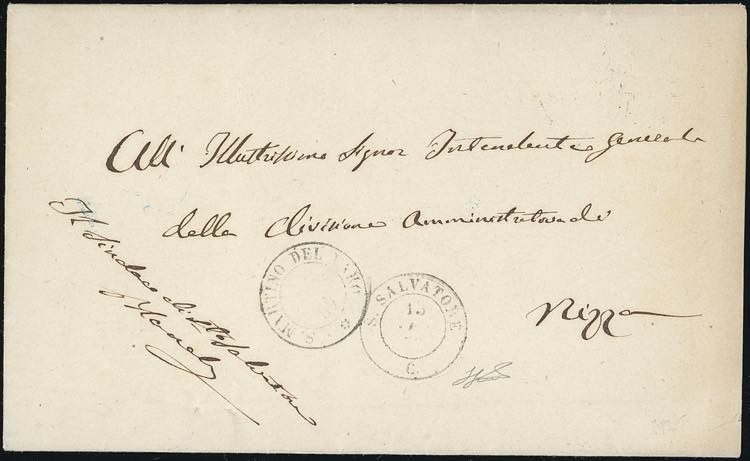 All' Illustrissimo Signor Intendente Generale
della Divisione Amministrativa di
Nizza
Il Sindaco di S. Salvatore
S. MARTINO DEL VARO
S. SALVATORE
15
C.